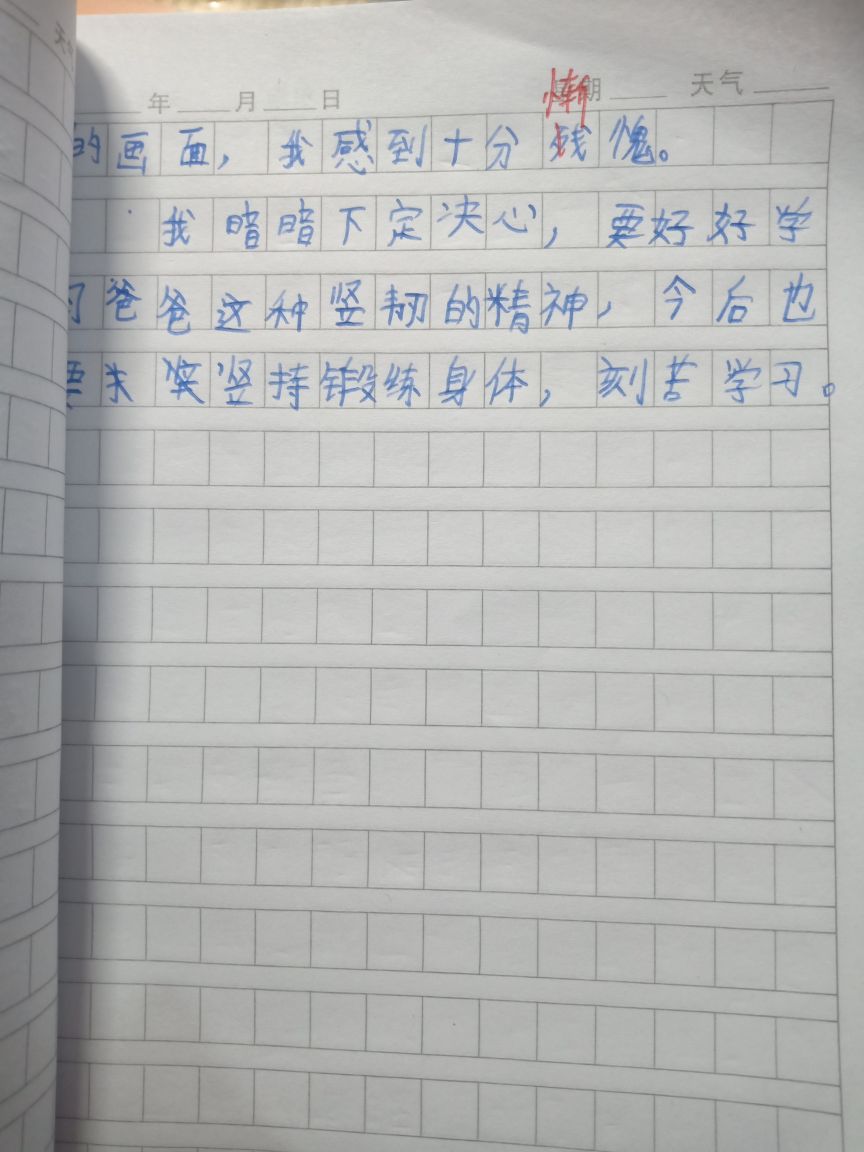 天
年 月 日 期 天气
惭
的画面，我感到十分愧。
我暗暗下定决心，要好好学
习爸爸这种竖韧的精神，今后也
要 竖持锻练身体，刻苦学习。